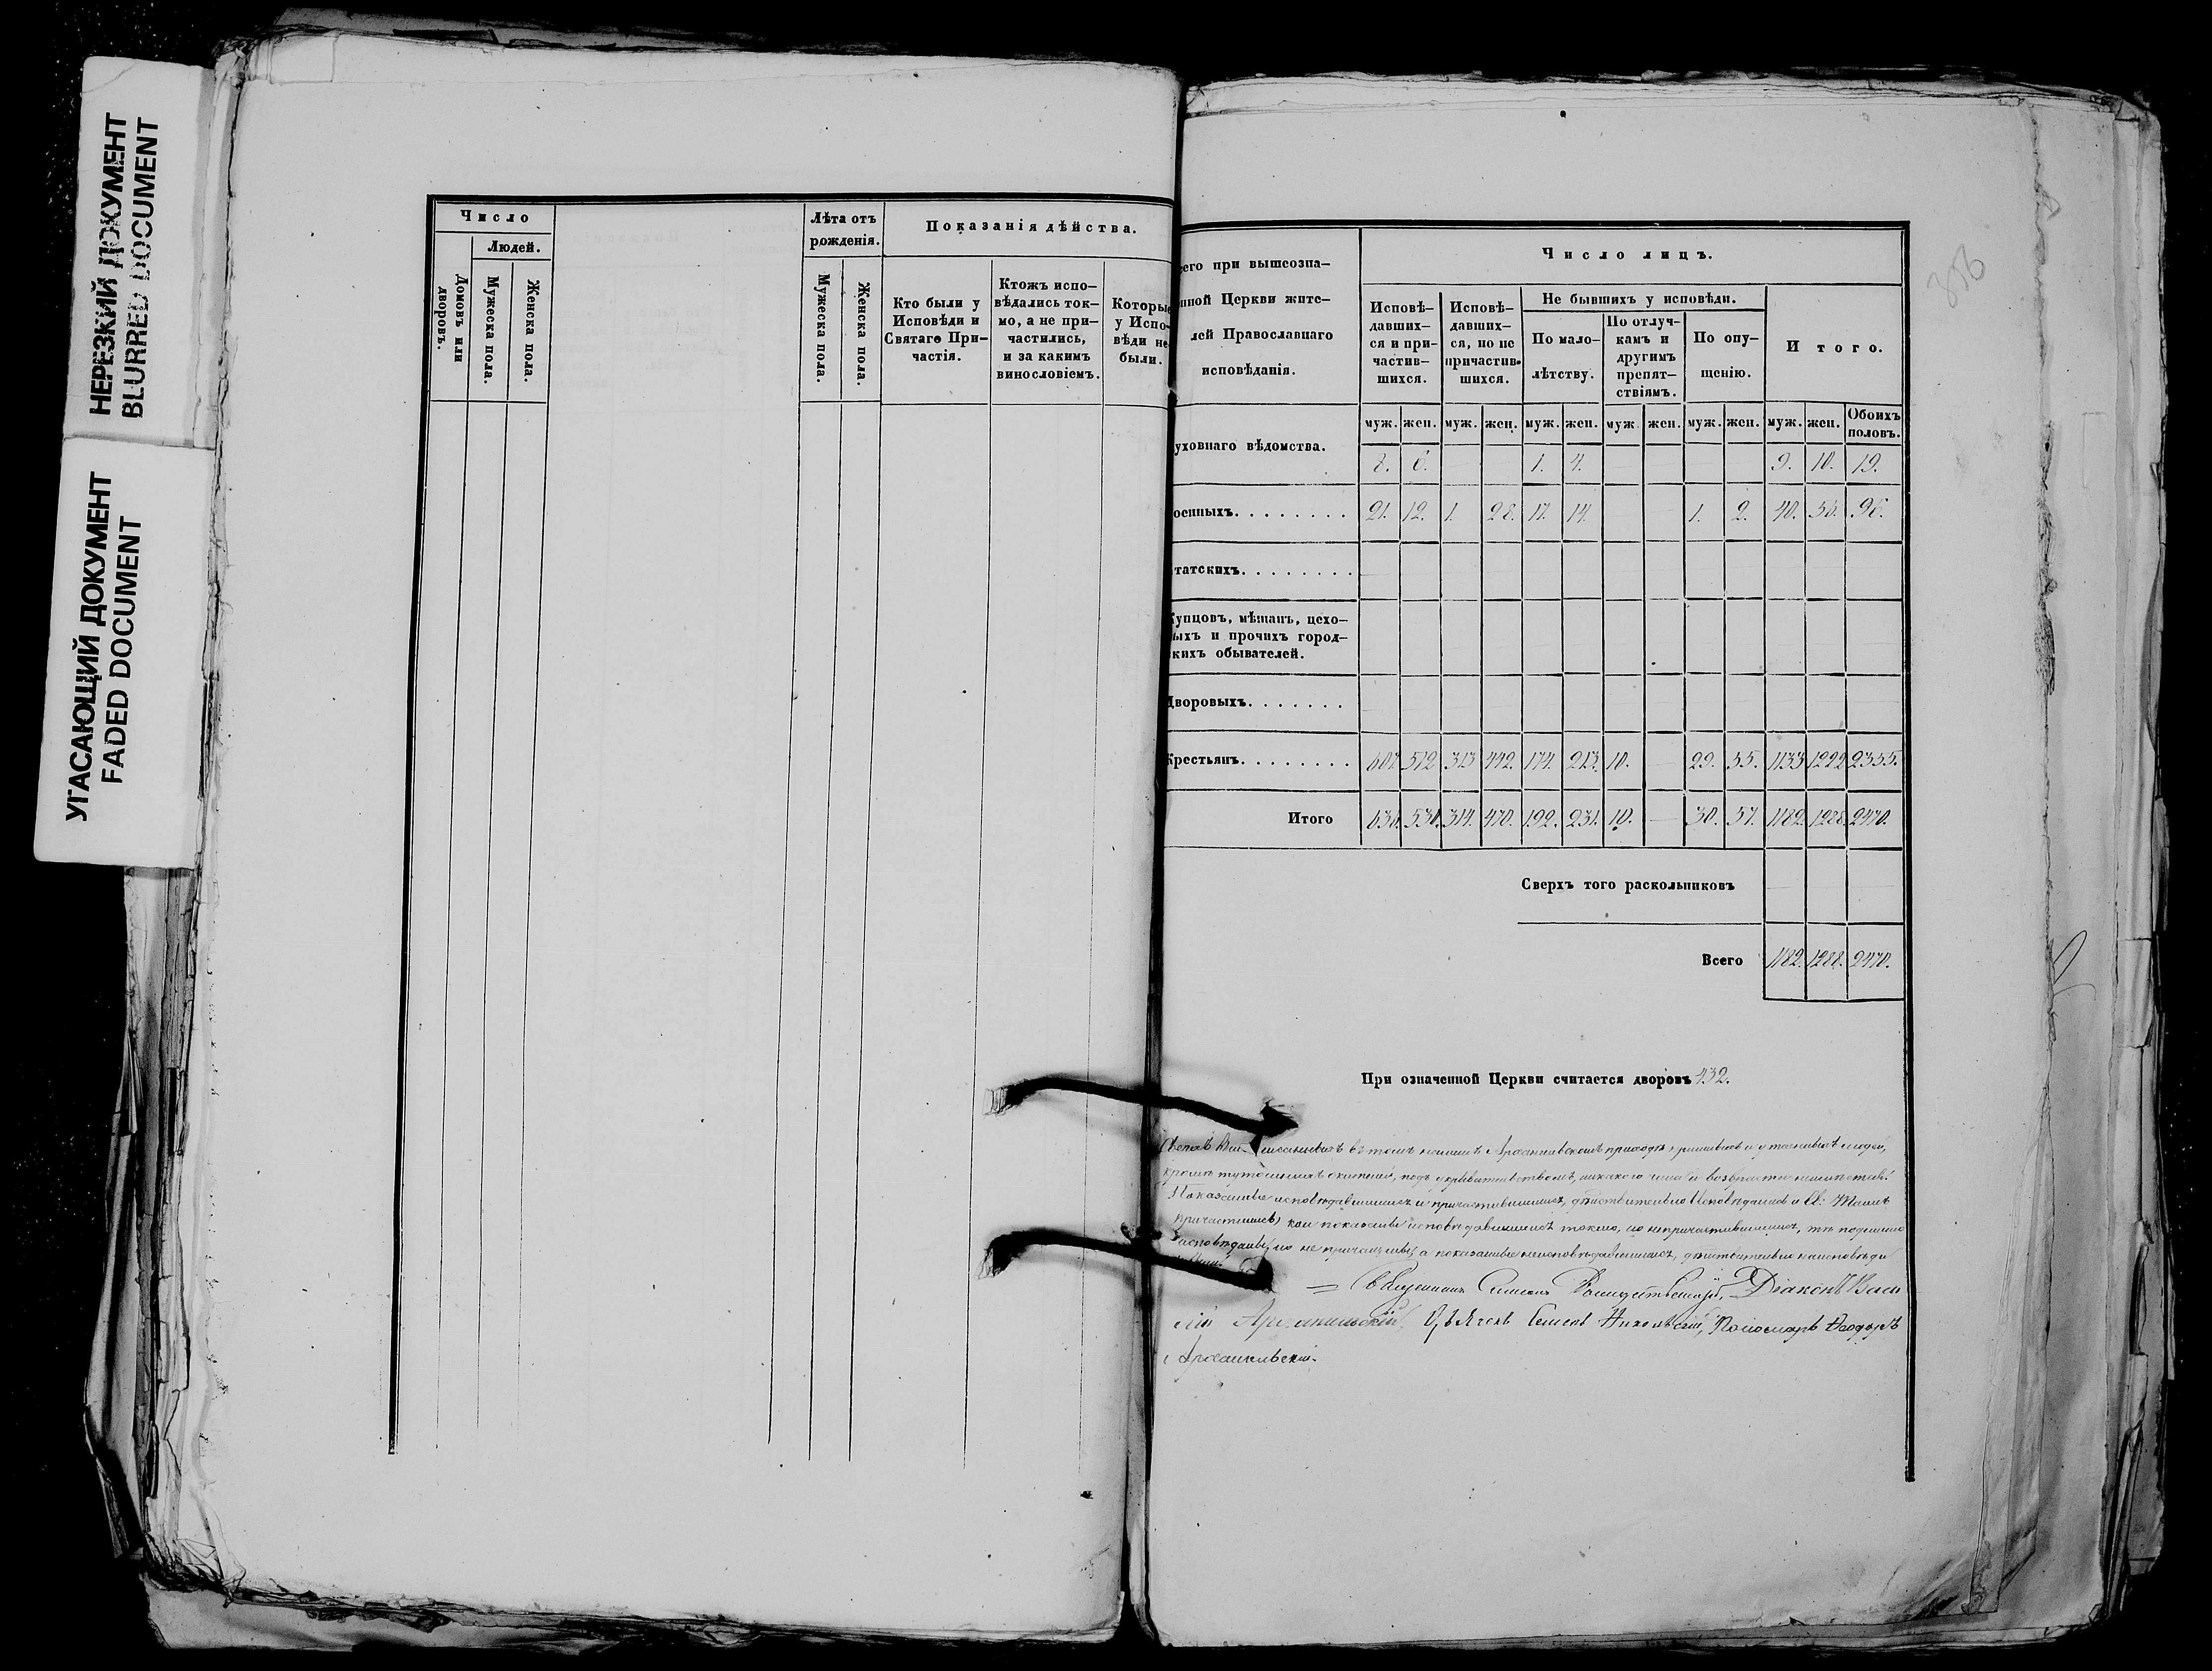 НЕРЕЗКИЙ ДОКУМЕНТ
BLURRED DOCUMENT
УГАСАЮЩИЙ ДОКУМЕНТ
FADED DOCUMENT
Число
Людей.
Домовъ или дворовъ.
Мужеска пола.
Женска пола.
Лѣта отъ
рожденія.
Мужеска пола.
Женска пола.
Показанія дѣйства.
Кто были у
Исповѣди и
Святаго При-
частія.
Ктожъ испо-
вѣдались ток-
мо, а не при-
частились,
и за какимъ
винословіемъ.
Которые
у Испо-
вѣди не
были.
его при вышеозна-
нной Церкви жите-
лей Православнаго
исповѣданія.
Число лицъ.
Исповѣ-
давших-
ся и при-
частив-
шихся.
Исповѣ-
давших-
ся, но не
причастив-
шихся.
Не бывшихъ у исповѣди.
По мало-
лѣтству.
По отлуч-
камъ и
другимъ
препят-
ствіямъ.
По опу-
щенію.
Итого.
муж. жен. муж. жен. муж. жен. муж. жен. муж. жен. муж. жен. Обоихъ половъ.
уховнаго вѣдомства. 8. 6. 1. 4. 9. 10. 19.
оенныхъ. . . . . . . . 21. 12. 1. 28. 17. 14. 1. 2. 40. 56. 96.
татскихъ. . . . . . . .
упцовъ, мѣщанъ, цехо-
ыхъ и прочихъ город-
кихъ обывателей.
Дворовыхъ. . . . . . .
Крестьянъ. . . . . . . . 607. 512 313 442. 174. 213. 10. 29. 55. 1133 1222 2355.
Итого 636. 530. 314. 470. 192. 231. 10. 30. 57. 1182. 1288. 2470.
Сверхъ того раскольниковъ
Всего 1182. 1288. 2470.
При означенной Церкви считается дворовъ 432.
въ томъ нашемъ Архангельскомъ приходѣ людей,
никакого чина и возраста
Показанные исповѣдавшимися и причастившимися, дѣйствительно Исповѣдались и Св. Таинъ
причастились, кои показаны исповѣдавшимися токмо, но непричастившимися, тѣ подлинно
исповѣданы, но не причащены, а показанные неисповѣдавшимися, дѣйствительно на исповѣди
Священникъ Симеонъ Діаконъ Васи
лій Архангельскій, Дьячекъ Семенъ Никольскій, Пономарь Ѳеодоръ
Архангельскій.